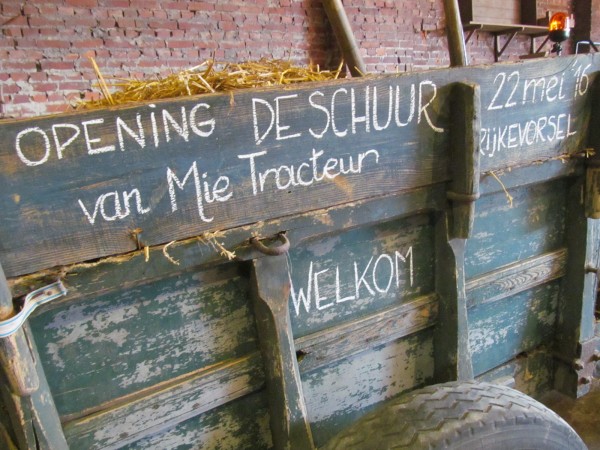 OPENING DE SCHUUR
van Mie Tracteur
22 mei '16
RIJKEVORSEL
WELKOM